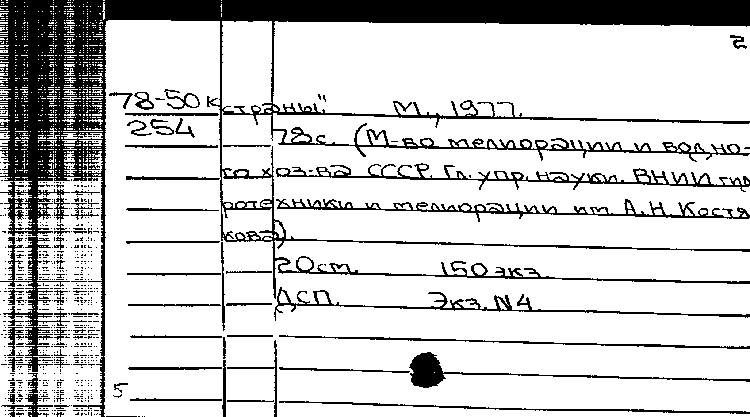 2
78-50к страны." М., 1977.
254 78с. (М-во мелиорации и водно-
го хоз-ва СССР. Гл. упр. науки. ВНИИ гид
ротехники и мелиорации им. А.Н. Костя
кова).
20см. 150 экз.
ДСП. Экз. N4.
5